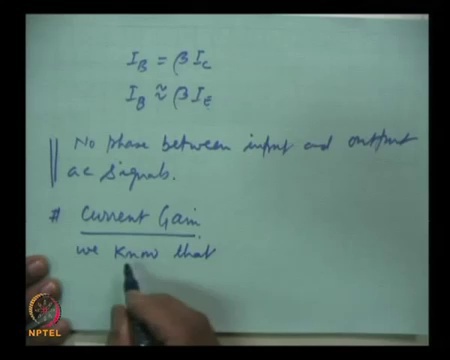 I_B = β I_C
I_B ≈ β I_E
No phase between input and output
ac signals.
# Current Gain
we know that
NPTEL